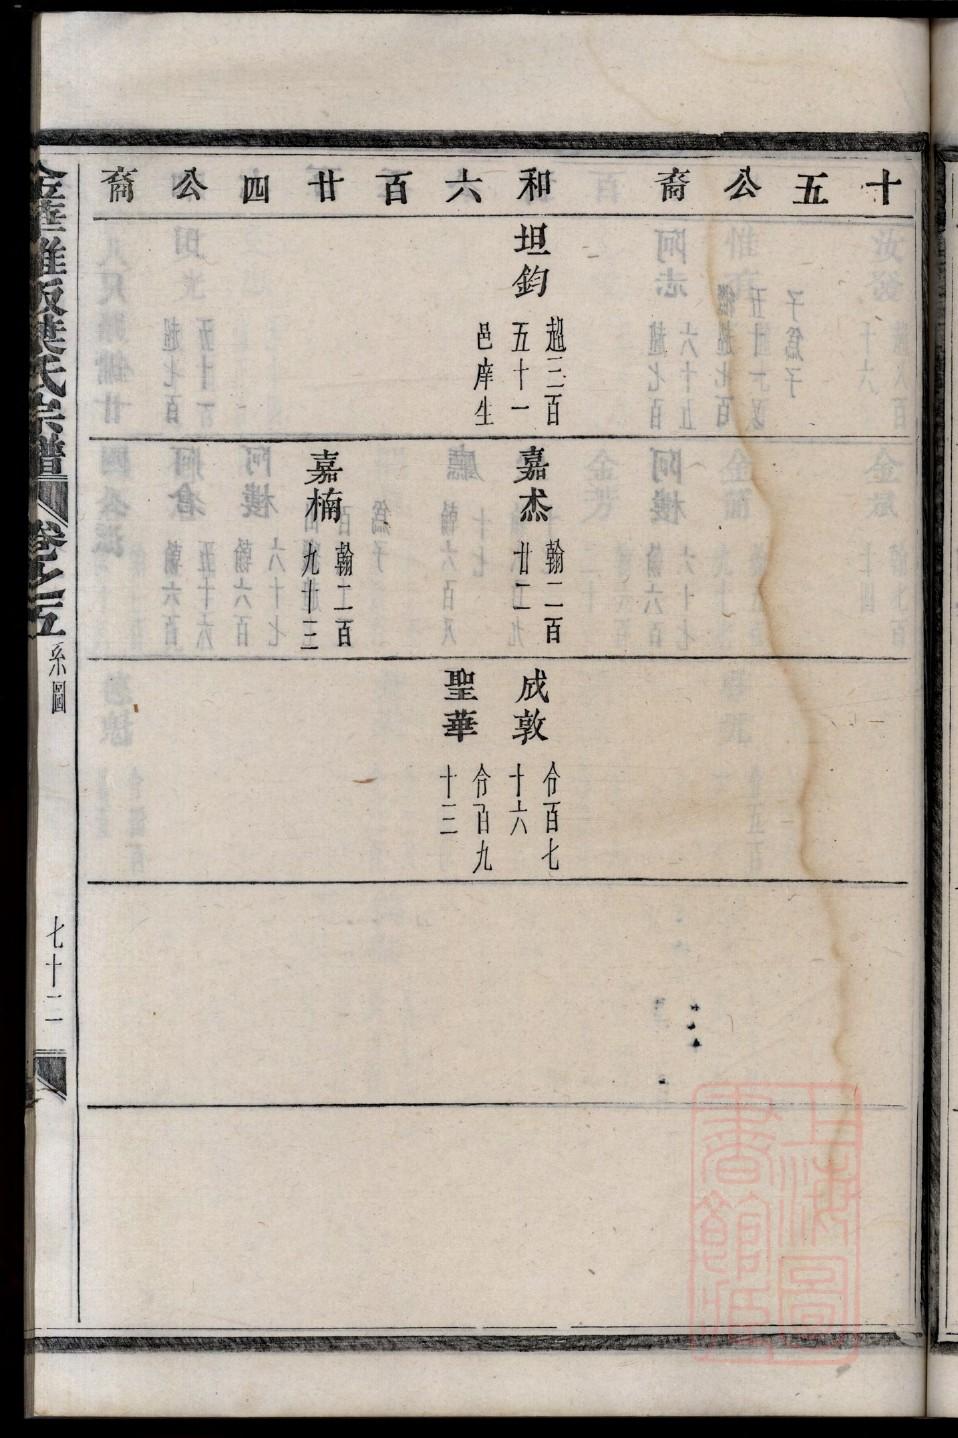 十五公裔
和六百廿四公裔
坦鈞
超三百
五十一
邑庠生
嘉杰
翰二百
廿二
嘉楠
翰二百
九十三
成敦
合百七
十六
聖華
合百九
十三
氏宗譜
卷之五
系圖
七十二
上海圖
書館藏